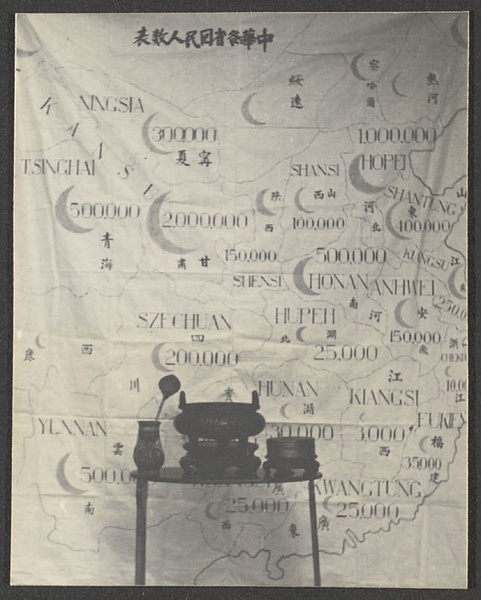 中華各省回民人數表
綏遠
察哈爾
熱河
NINGSIA
300,000
寧夏
KANSI
1,000,000
HOPEI
河北
T.SINGHAI
500,000
青海
2,000,000
甘肅
SHANSI
山西
100,000
陝西
150,000
SHENSI
SHANTUNG
山東
400,000
KIANGSU
江
500,000
HONAN
河南
ANHWEI
安
150,000
SZECHUAN
四川
200,000
HUPEH
湖北
25,000
西康
湖
HUNAN
30,000
KIANGSI
江西
3,000
FUKIEN
福建
35000
江
YUNNAN
雲南
500,0
貴
25,000
廣西
KWANGTUNG
廣東
25,000